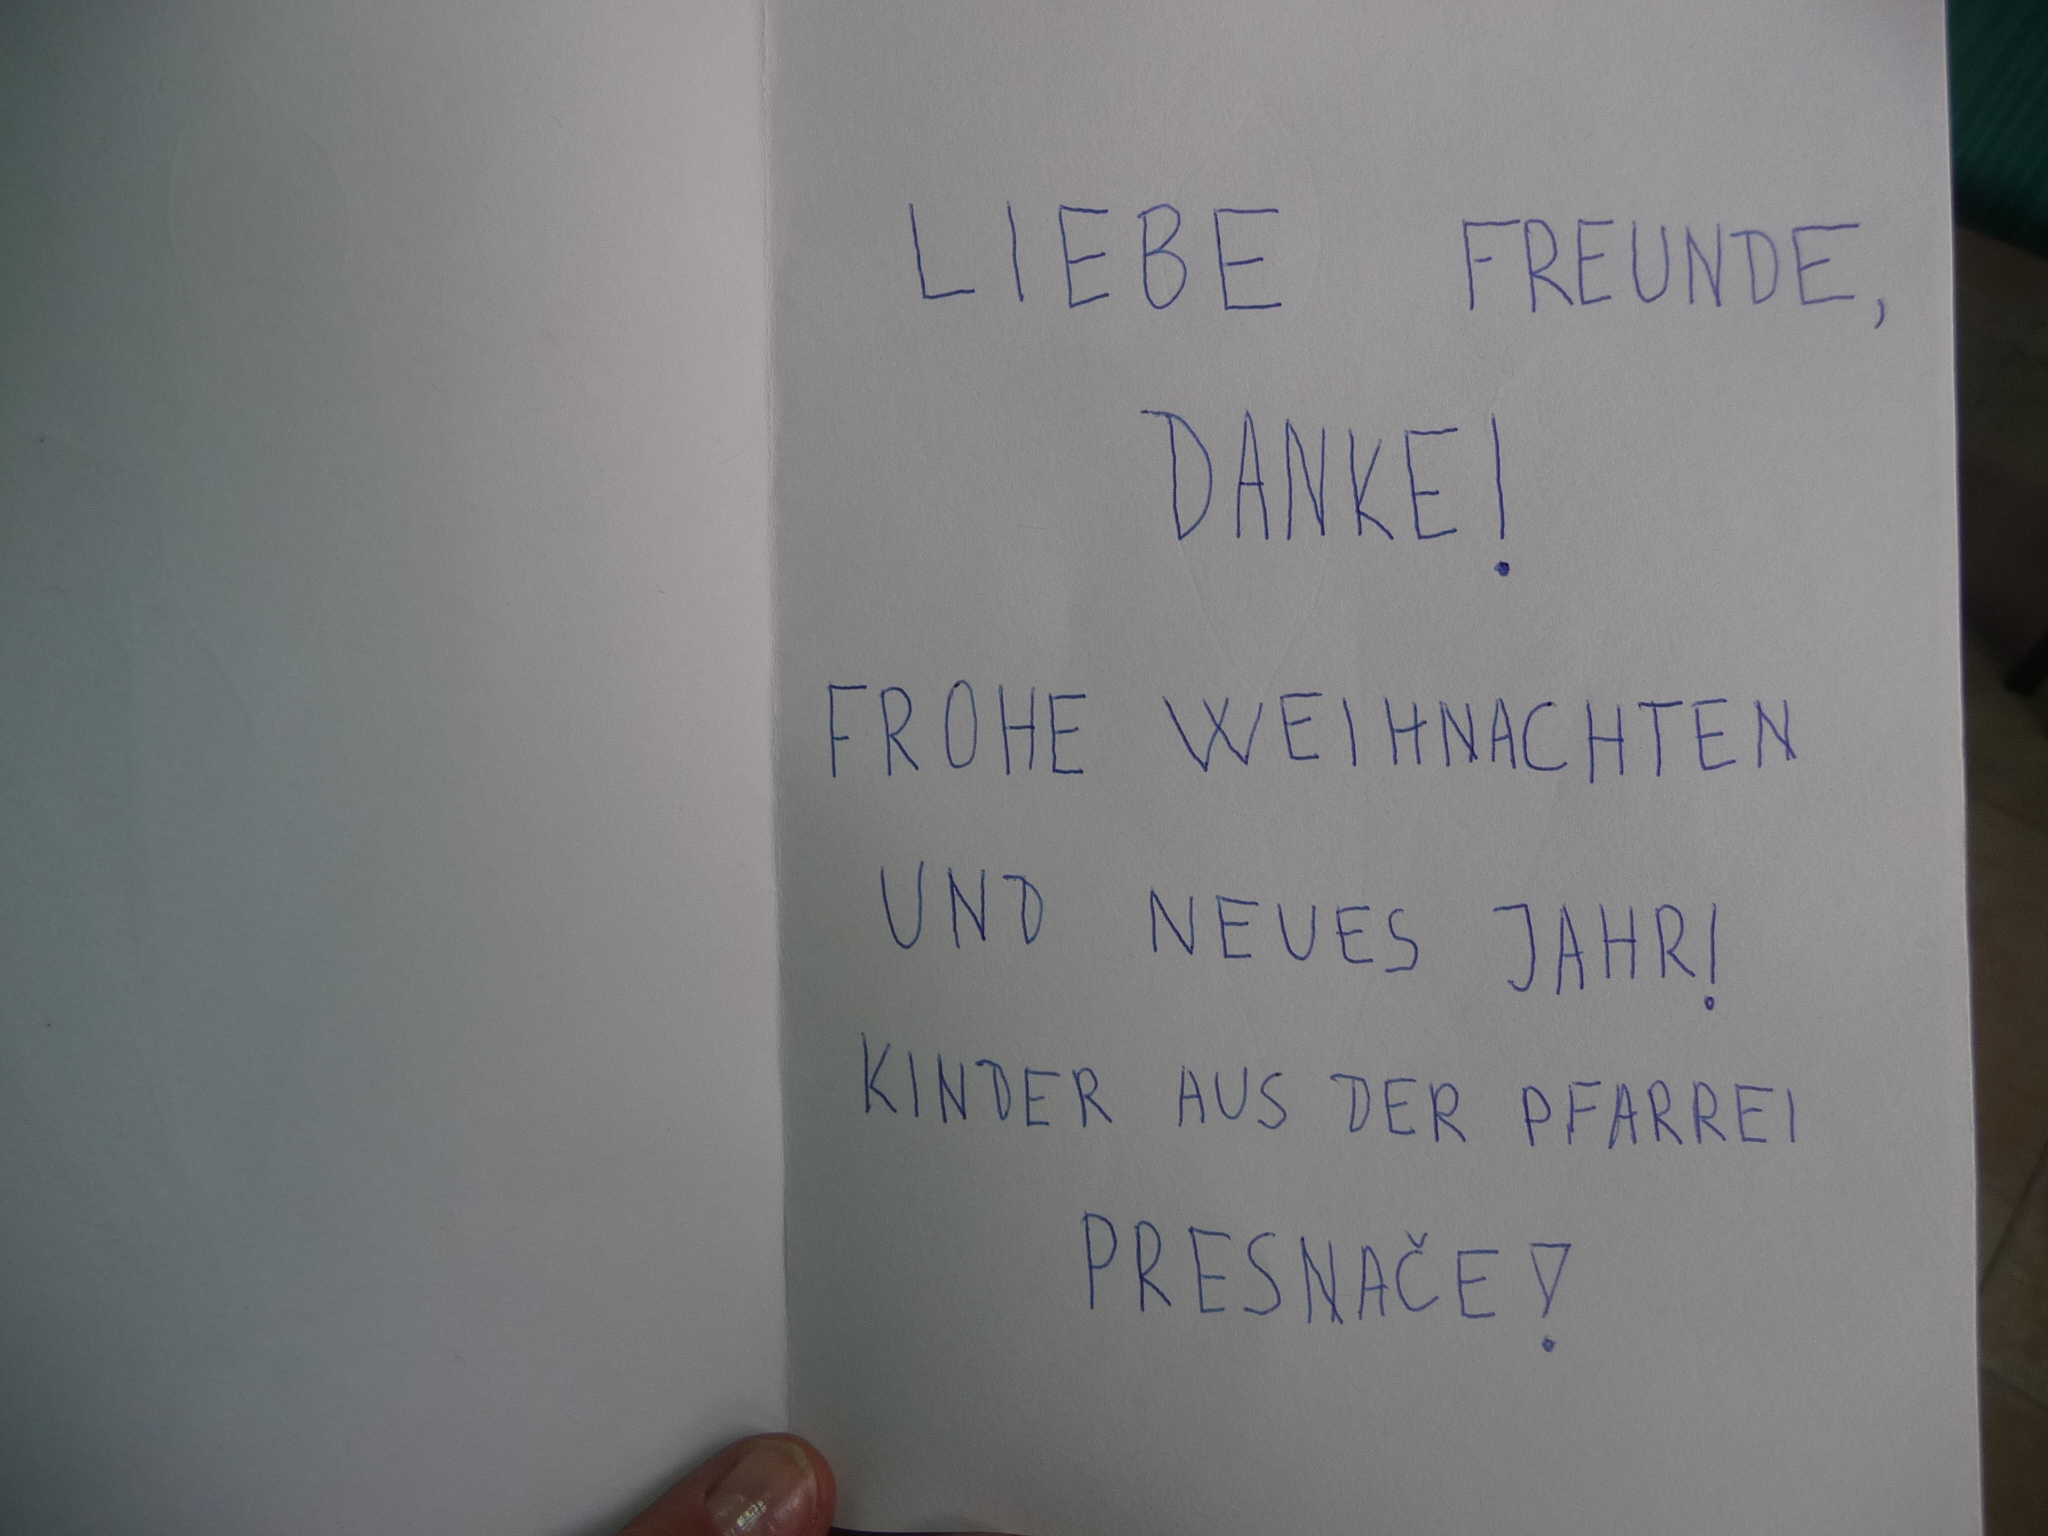 LIEBE FREUNDE,
DANKE!
FROHE WEIHNACHTEN
UND NEUES JAHR!
KINDER AUS DER PFARREI
PRESNAČE!